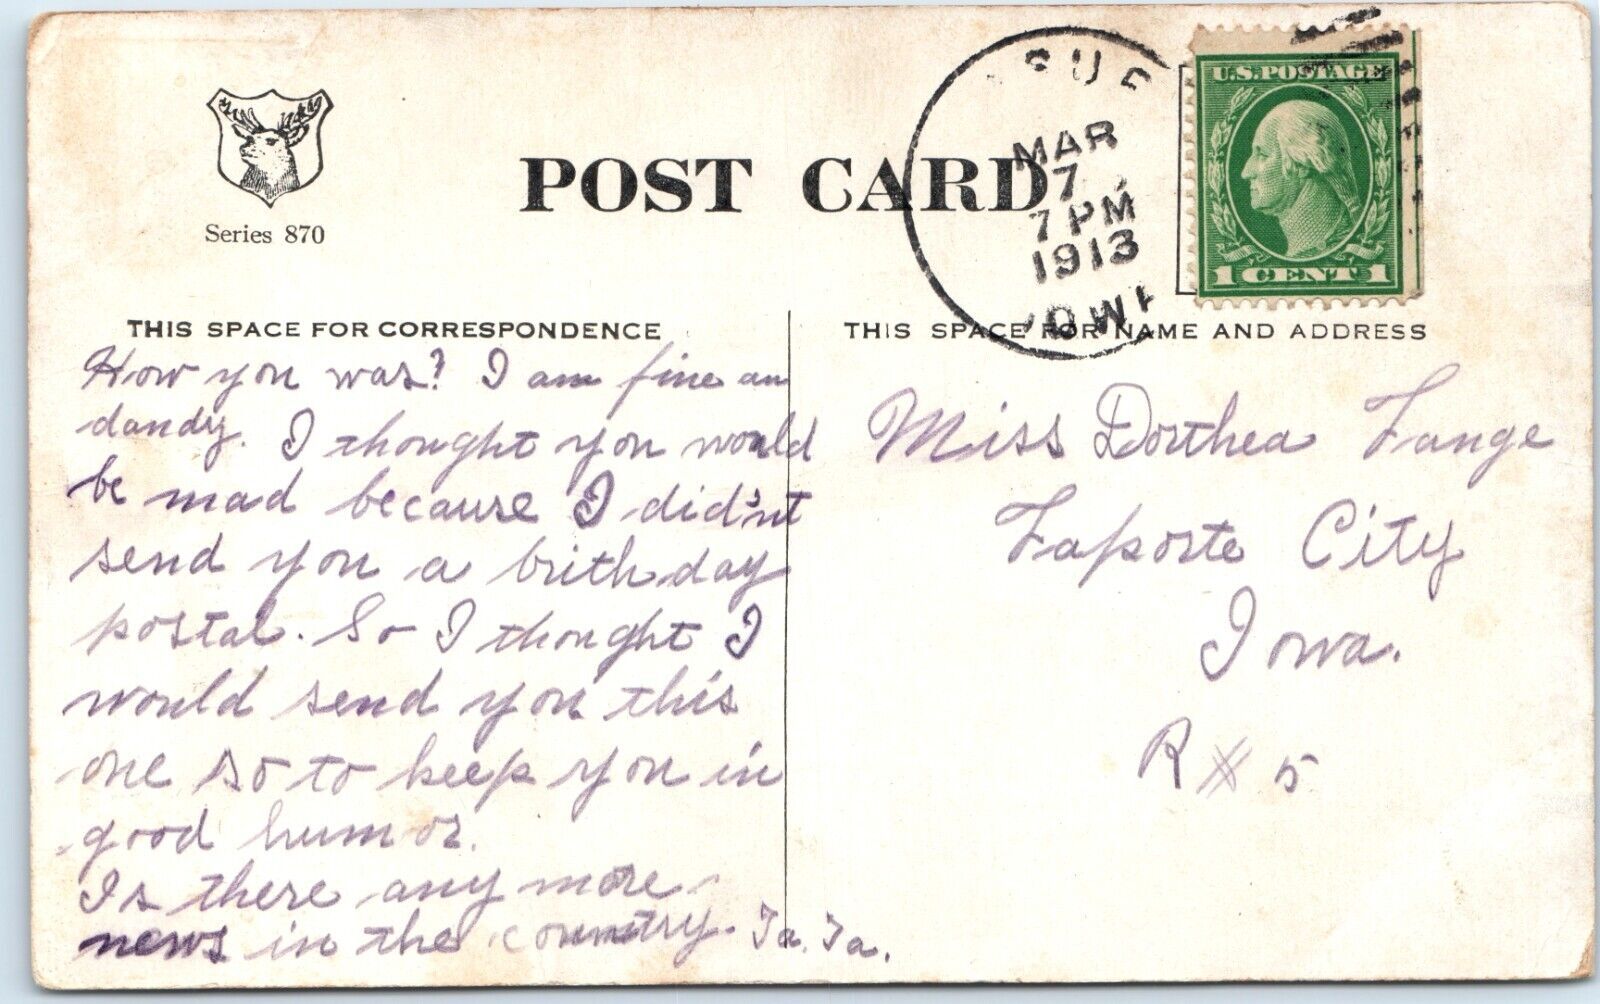 Series 870
POST CARD
MAR
7
7 PM
1913
IOWA
U.S. POSTAGE
1 CENT 1
THIS SPACE FOR CORRESPONDENCE
How you was? I am fine an
dandy. I thought you would
be mad because I did'nt
send you a birthday
postal. So I thought I
would send you this
one so to keep you in
good humor.
Is there any more
news in the country. Ta. Ta.
THIS SPACE FOR NAME AND ADDRESS
Miss Dorthea Lange
Laporte City
Iowa.
R # 5